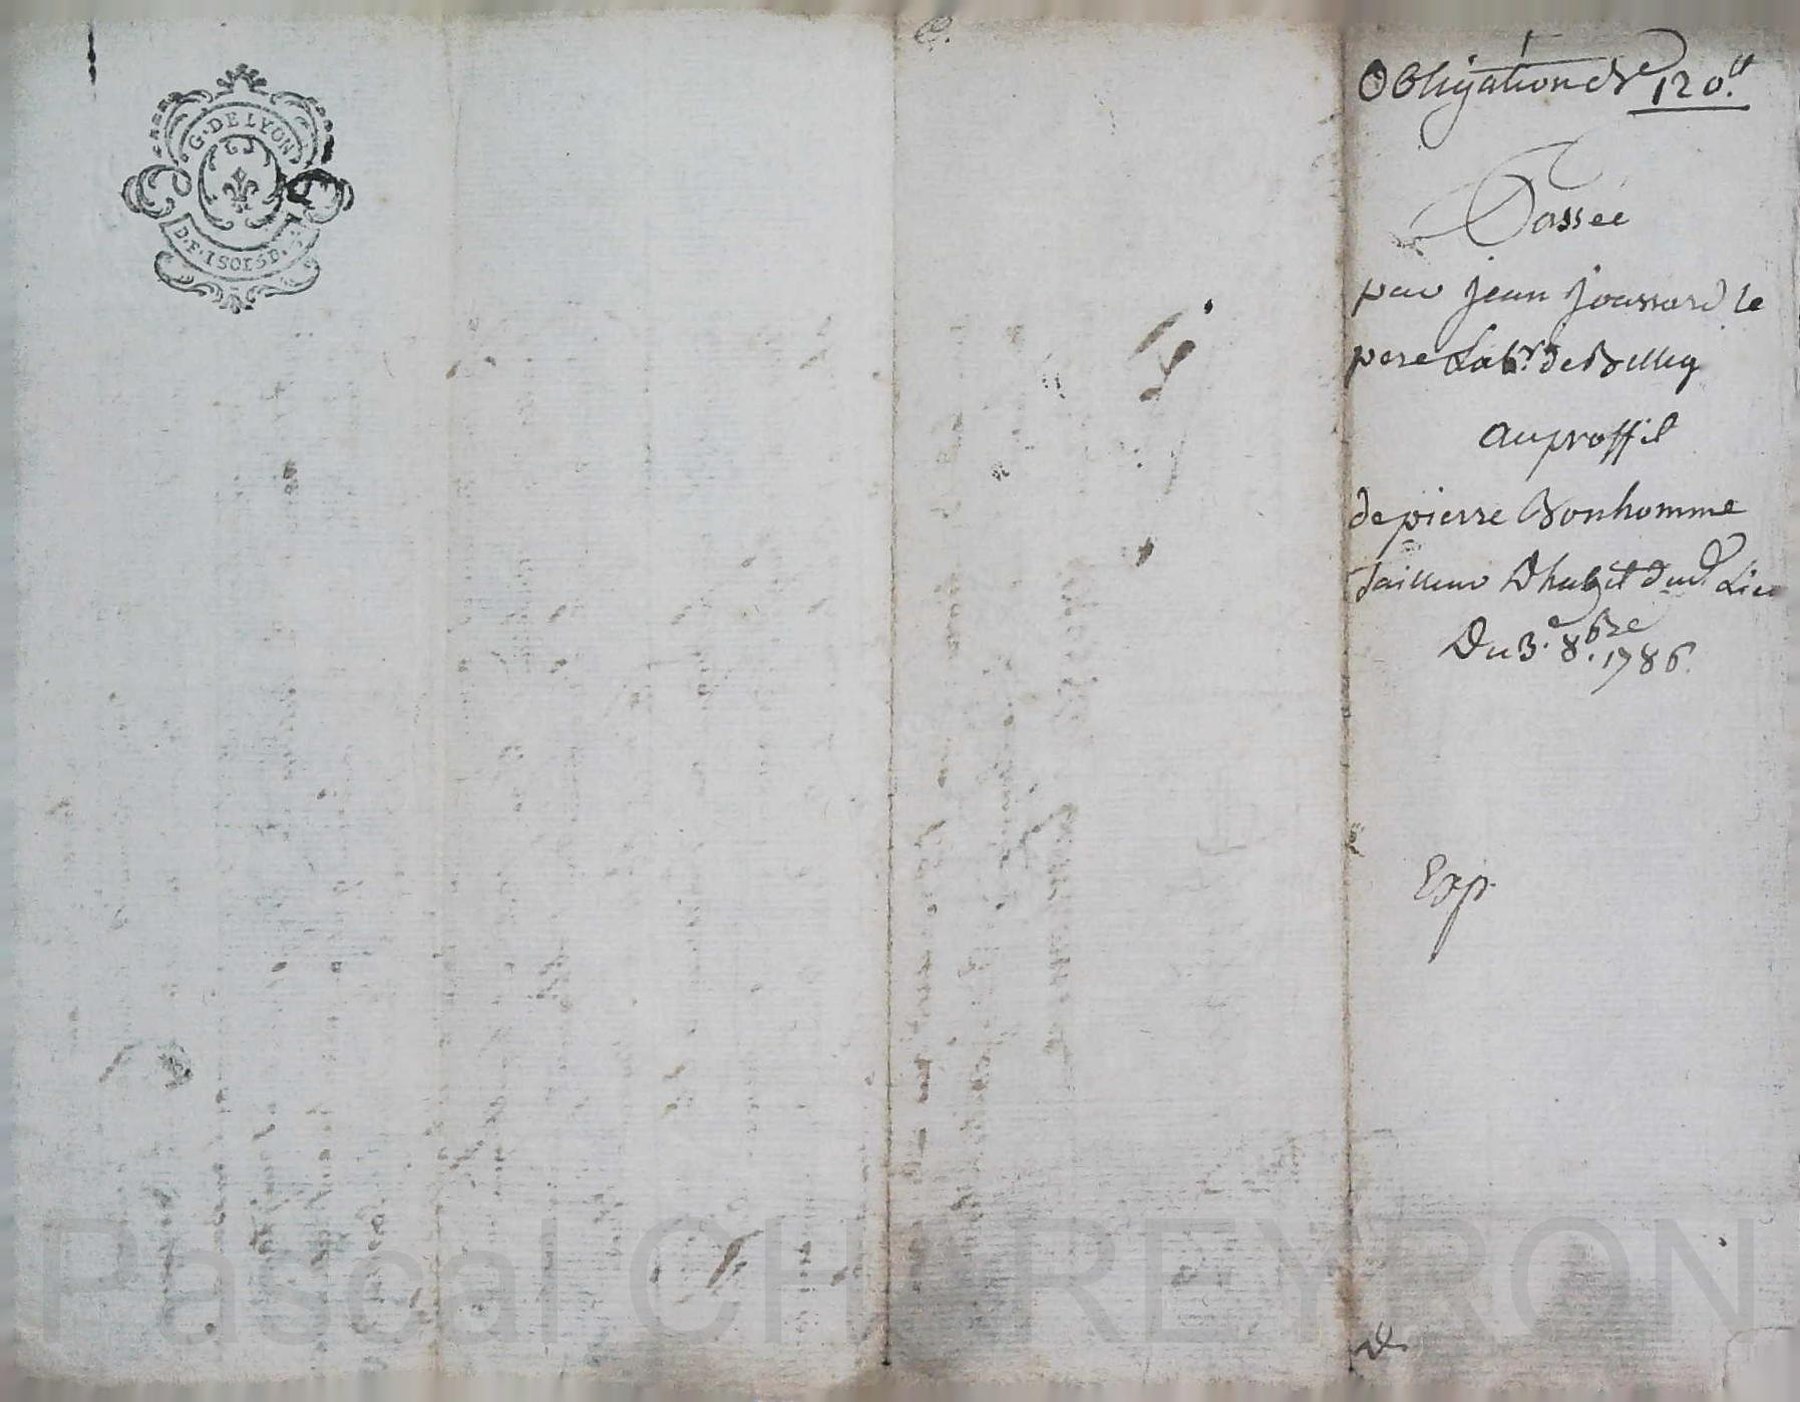 G. DE LYON
D.F. 1 SOL 5 D.
Obligation de 120.lt
Passée
par jean joassard le
pere Lab.r de Billig
au proffit
de pierre Bonhomme
Tailleur Dhabit dud. Lieu
Du 3.e 8.bre 1786.
Exp.
Pascal CHAREYRON